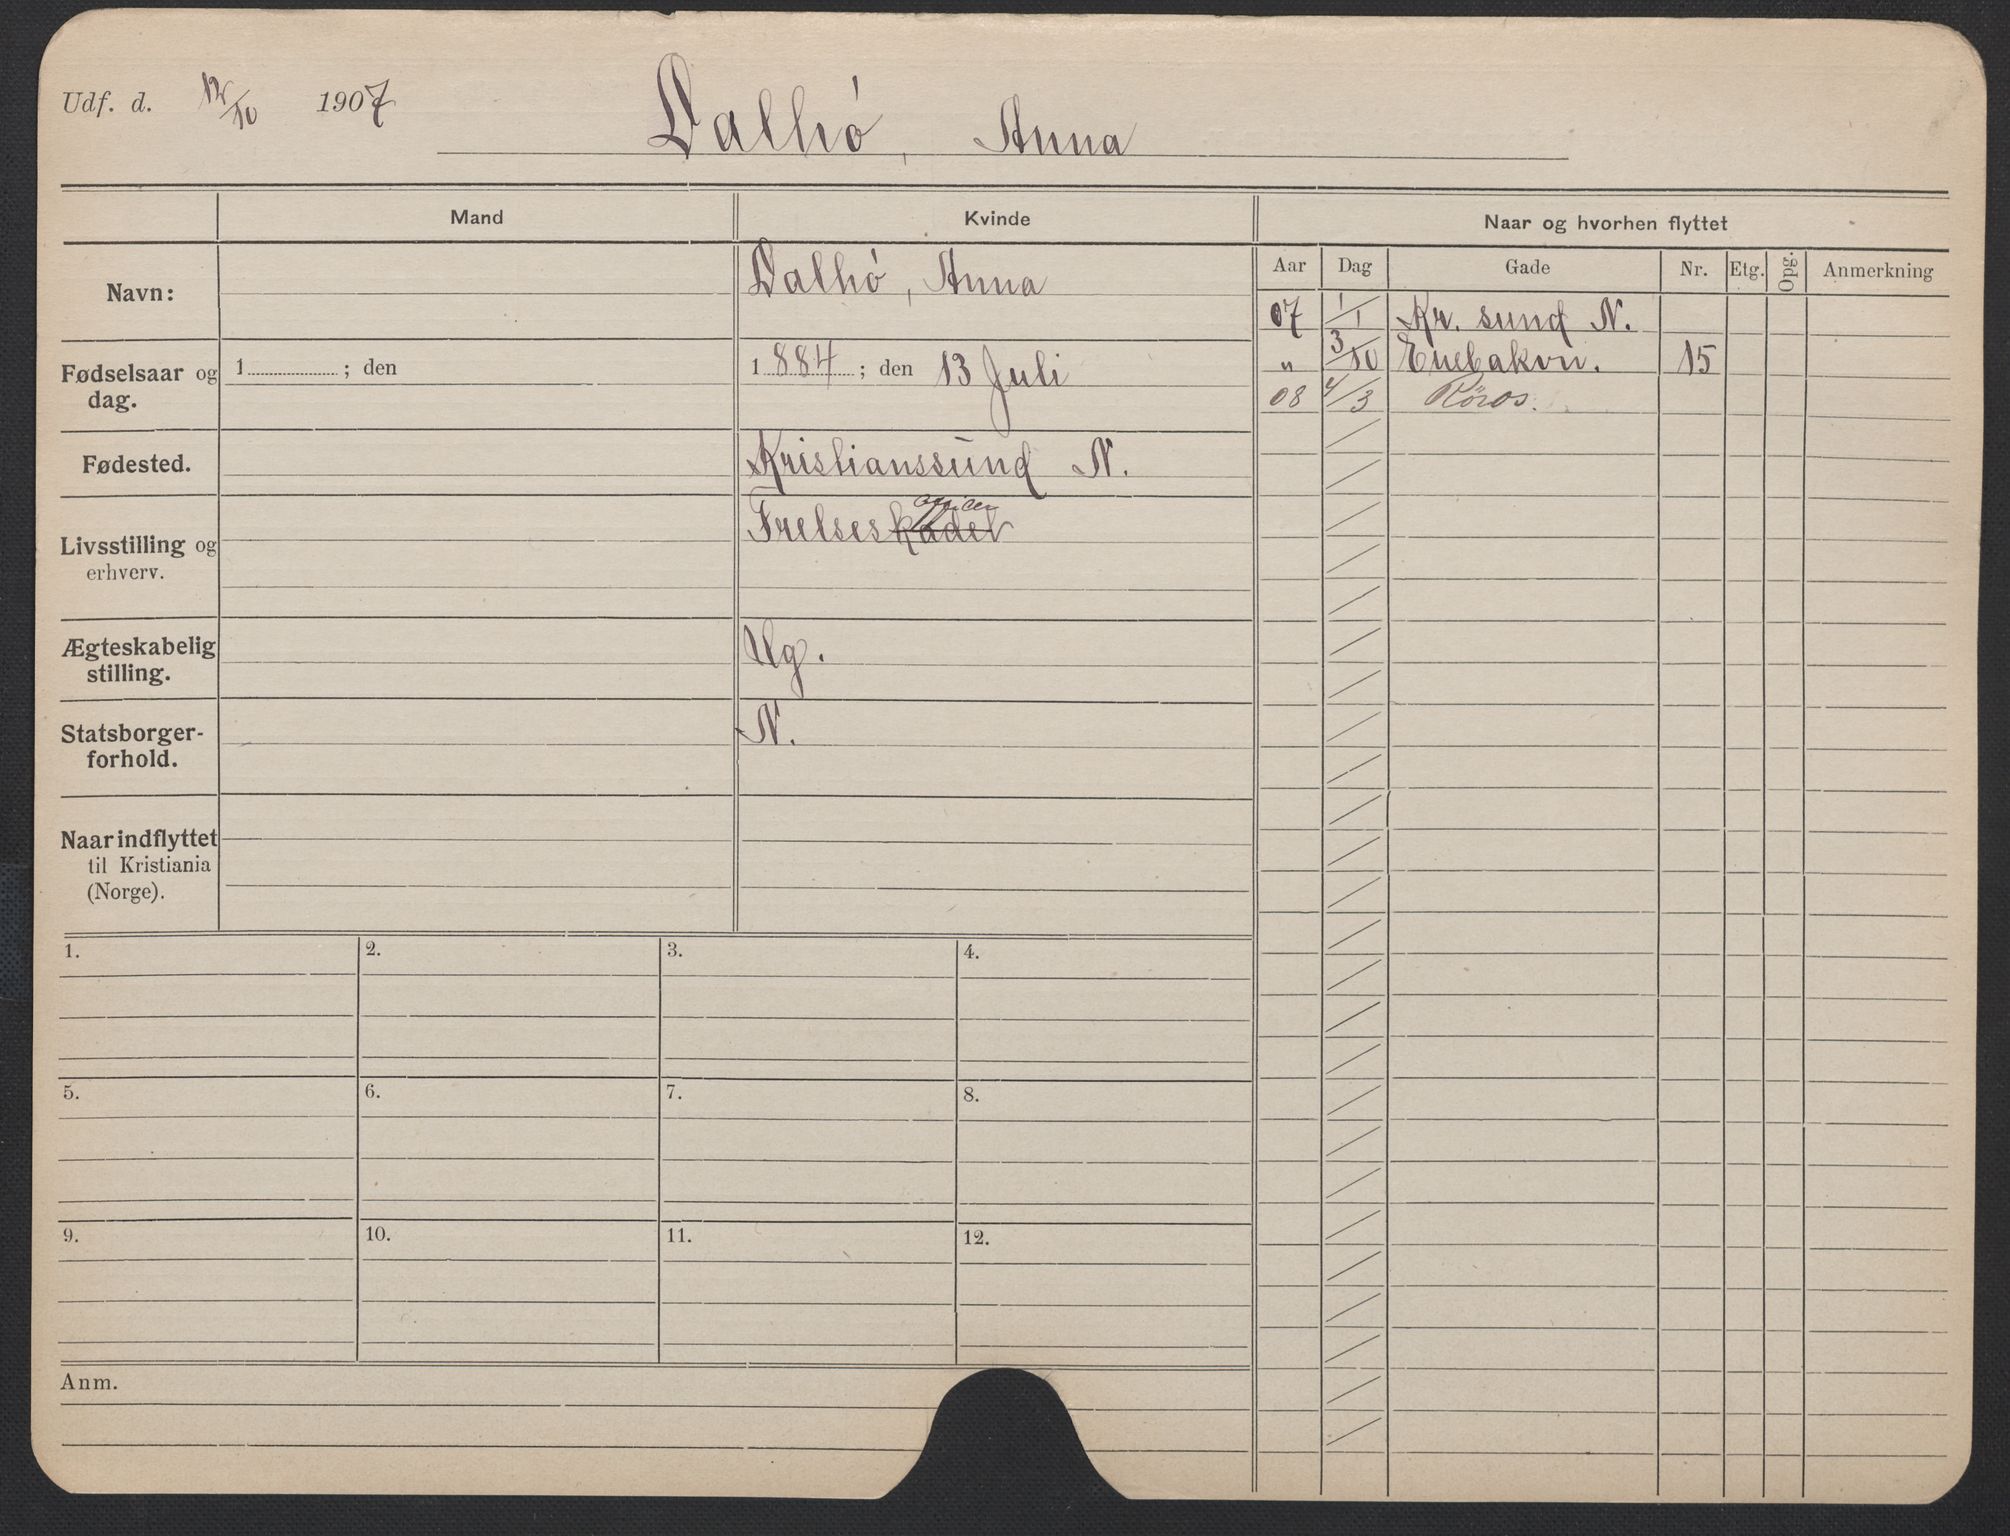 Udf. d. 12/10 1907
Dalhó, Anna
Mand
Kvinde
Naar og hvorhen flyttet
Aar Dag Gade Nr. Etg. Opg. Anmerkning
Navn:
Dalhó, Anna
Fødselsaar og
dag.
1 ; den
1884 ; den 13 Juli
Fødested.
Kristianssund N.
Livsstilling og
erhverv.
officer
Frelseskadet
Ægteskabelig
stilling.
Ug.
Statsborger-
forhold.
N.
Naar indflyttet
til Kristiania
(Norge).
07 1/1 Kr. sund N.
„ 3/10 Enebakvn. 15
08 4/3 Röros.
1. 2. 3. 4.
5. 6. 7. 8.
9. 10. 11. 12.
Anm.